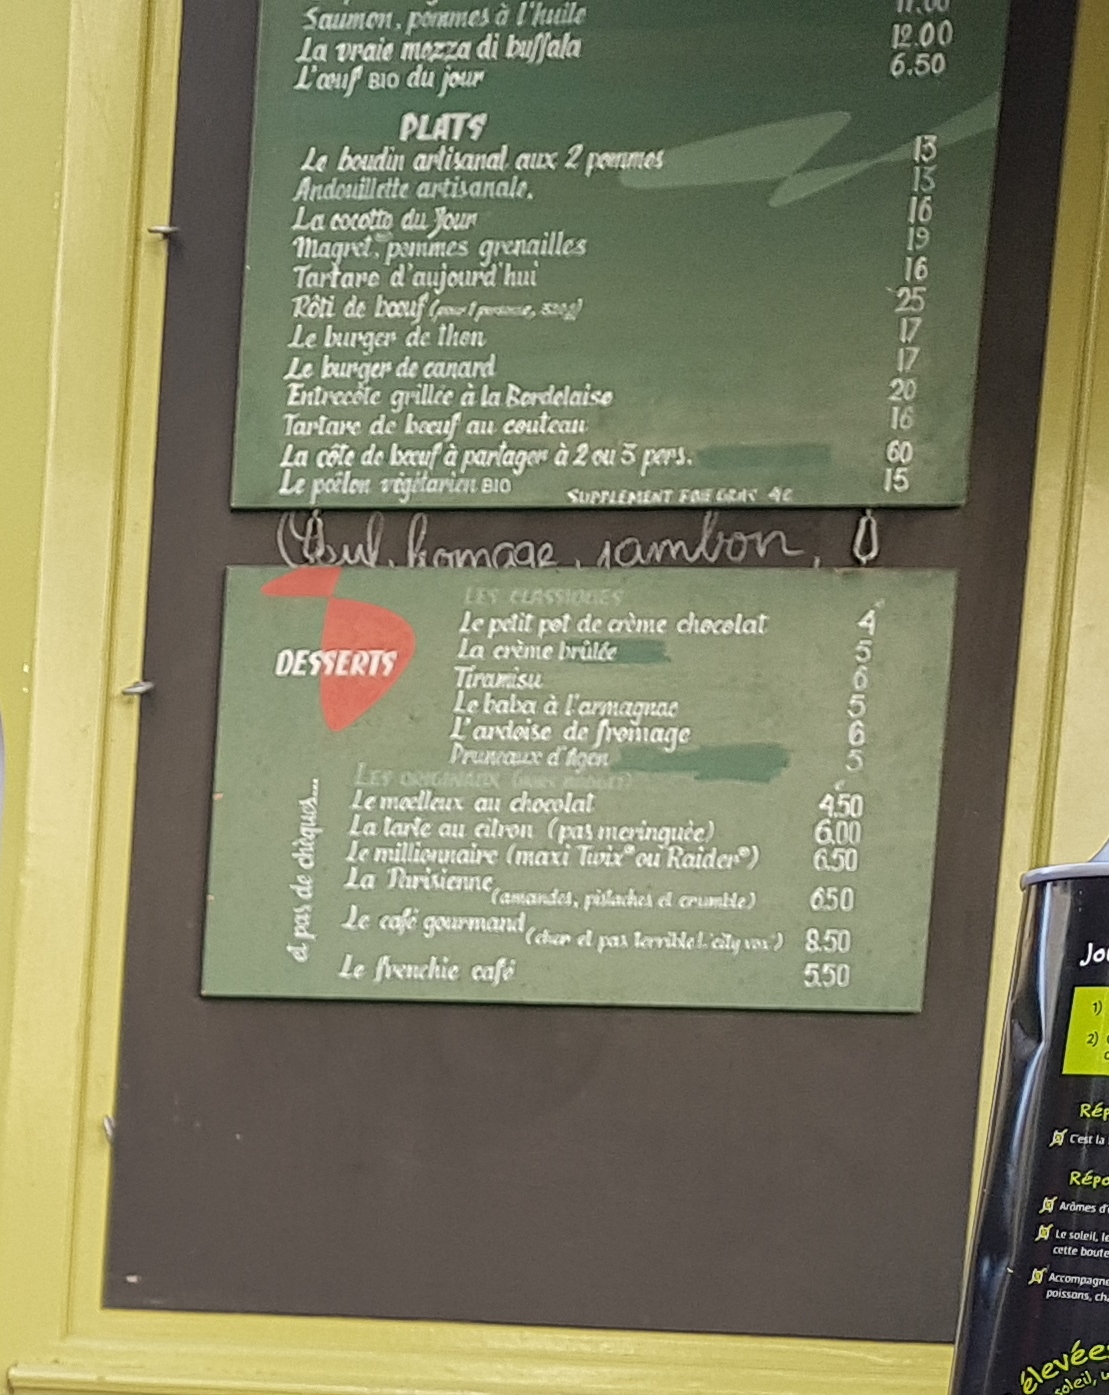 Saumon, pommes à l'huile 11.00
La vraie mozza di buffala 12.00
L'œuf BIO du jour 6.50
PLATS
Le boudin artisanal aux 2 pommes 13
Andouillette artisanale. 13
La cocotte du Jour 16
Magret, pommes grenailles 19
Tartare d'aujourd'hui 16
Rôti de bœuf (pour 1 personne, 320g) 25
Le burger de thon 17
Le burger de canard 17
Entrecôte grillée à la Bordelaise 20
Tartare de bœuf au couteau 16
La côte de bœuf à partager à 2 ou 3 pers. 60
Le poêlon végétarien BIO 15
SUPPLEMENT FOIE GRAS 4€
Oeuf, fromage, jambon,
LES CLASSIQUES
DESSERTS
Le petit pot de crème chocolat 4
La crème brûlée 5
Tiramisu 6
Le baba à l'armagnac 5
L'ardoise de fromage 6
Pruneaux d'Agen 5
LES ORIGINAUX
Le moelleux au chocolat 4.50
La tarte au citron (pas meringuée) 6.00
Le millionnaire (maxi Twix® ou Raider®) 6.50
La Parisienne (amandes, pistaches et crumble) 6.50
Le café gourmand (cher et pas terrible!.. 8.50
Le frenchie café 5.50
et pas de chèques....
Jo
1)
2)
Rép
C'est la
Répo
Arômes d'
Le soleil, le
cette boute
Accompagne
poissons, ch
élevée
soleil, u